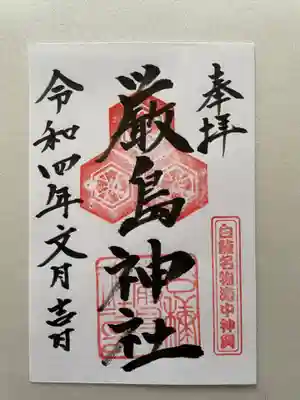 奉拝
厳島神社
令和四年文月吉日
白龍名物海中神輿